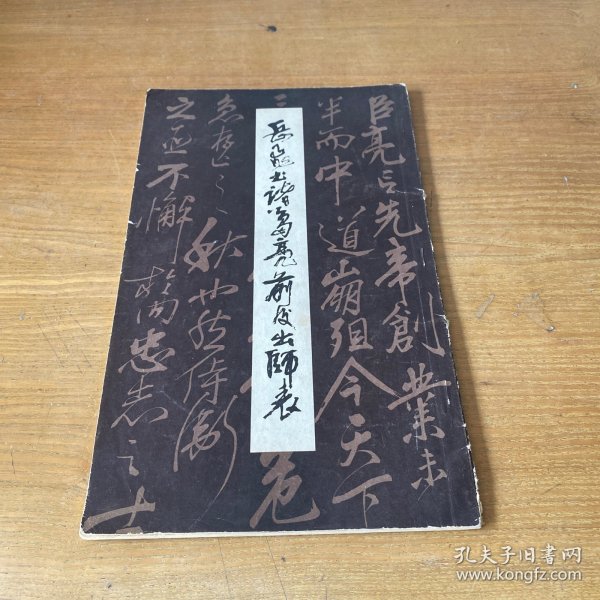 岳飛书諸葛亮前后出師表
臣亮言先帝創業未
半而中道崩殂今天下
三
危
急存亡之秋也然侍衛
之臣不懈於内忠志之士
孔夫子旧书网
www.kongfz.com